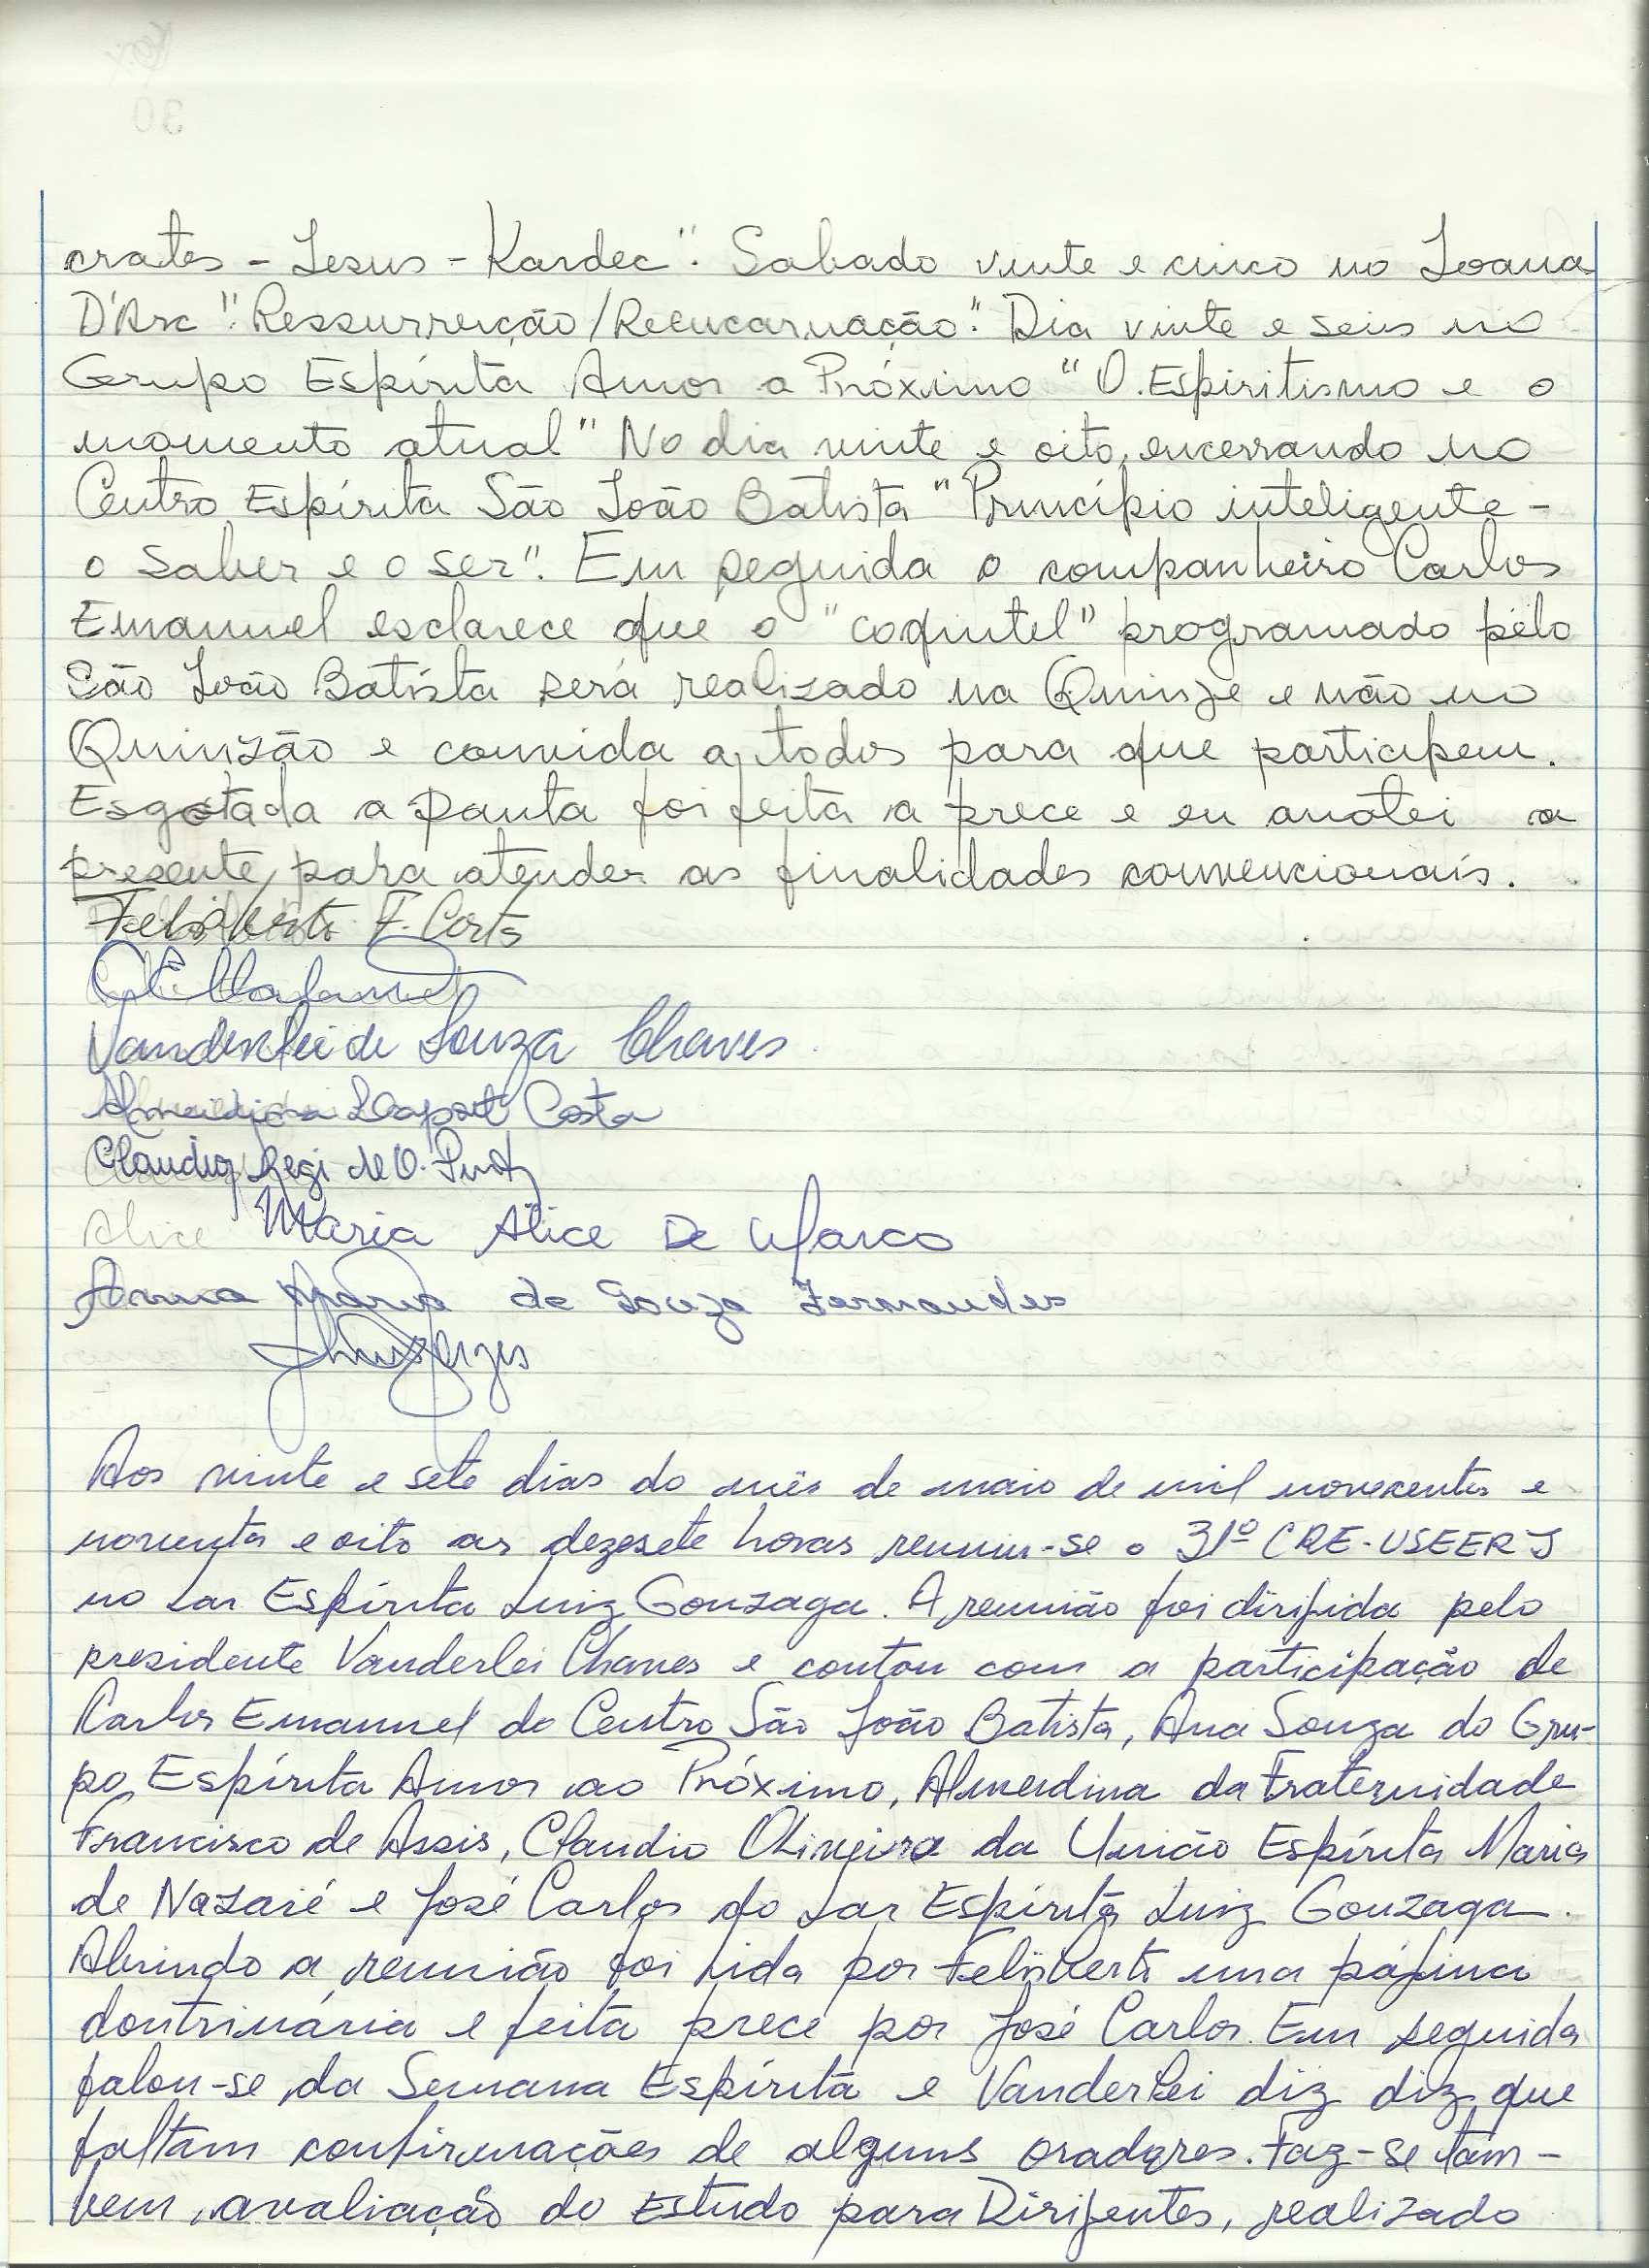 crates - Jesus - Kardec". Sabado vinte e cinco no Joana
D'Arc "Ressurreição/Reencarnação". Dia vinte e seis no
Grupo Espírita Amor a Próximo "O Espiritismo e o
momento atual" No dia vinte e oito, encerrando no
Centro Espírita São João Batista "Princípio inteligente -
o saber e o ser". Em seguida o companheiro Carlos
Emannuel esclarece que o "coquitel" programado pelo
São João Batista será realizado na Quinze e não no
Quinzão e convida a todos para que participem.
Esgotada a pauta foi feita a prece e eu anotei a
presente, para atender as finalidades convencionais.
Felisberto F. Costa
Vanderlei de Souza Chaves
Almerdina Costa
Claudio de O.
Alice Maria Alice De Marco
Anna Maria de Souza Fernandes
Aos vinte e sete dias do mês de maio de mil novecentos e
noventa e oito as dezesete horas reuniu-se o 31º CRE-USEERJ
no Lar Espírita Luiz Gonzaga. A reunião foi dirigida pelo
presidente Vanderlei Chaves e contou com a participação de
Carlos Emannuel do Centro São João Batista, Ana Souza do Gru-
po Espírita Amor ao Próximo, Almerdina da Fraternidade
Francisco de Assis, Claudio Oliveira da União Espírita Maria
de Nazaré e José Carlos do Lar Espírita Luiz Gonzaga.
Abrindo a reunião foi lida por Felisberto uma página
doutrinária e feita prece por José Carlos. Em seguida
falou-se da Semana Espírita e Vanderlei diz diz que
faltam confirmações de alguns oradores. Faz-se tam-
bem, avaliação do Estudo para Dirigentes, realizado